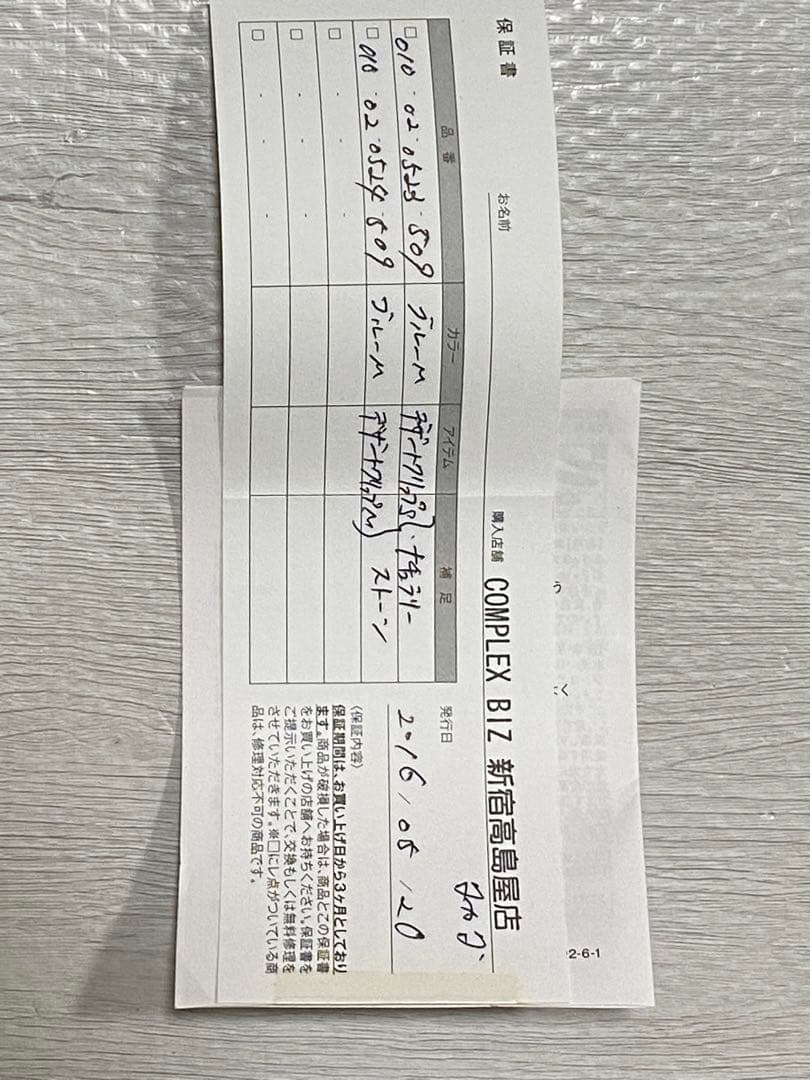 保証書
お名前
購入店舗 COMPLEX BIZ 新宿高島屋店
品番 カラー アイテム 補足
□ 010・02・0523・809 ブルーM デザートクリップS ナチュラリー
□ 010・02・0524・809 ブルーM デザートクリップM ストーン
□ ・ ・ ・
□ ・ ・ ・
□ ・ ・ ・
発行日
2016/05/20
〈保証内容〉
保証期間は、お買い上げ日から3ヶ月としており
ます。商品が破損した場合は、商品とこの保証書
をお買い上げの店舗へお持ちください。保証書を
ご提示いただくことで、交換もしくは無料修理を
させていただきます。※□にレ点がついている商
品は、修理対応不可の商品です。
う
く
2-6-1